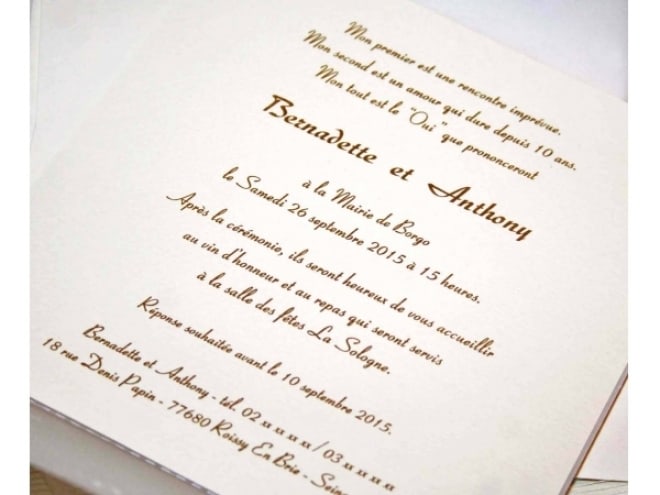 Mon premier est une rencontre imprévue.
Mon second est un amour qui dure depuis 10 ans.
Mon tout est le "Oui" que prononceront
Bernadette et Anthony
à la Mairie de Borgo
le Samedi 26 septembre 2015 à 15 heures.
Après la cérémonie, ils seront heureux de vous accueillir
au vin d'honneur et au repas qui seront servis
à la salle des fêtes La Sologne.
Réponse souhaitée avant le 10 septembre 2015.
Bernadette et Anthony - tél. 02 xx xx xx / 03 xxxx
18 rue Denis Papin - 77680 Roissy En Brie - Seine